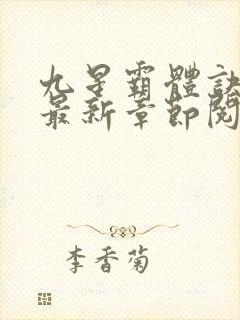 九星霸體訣
最新章節閱
李香菊